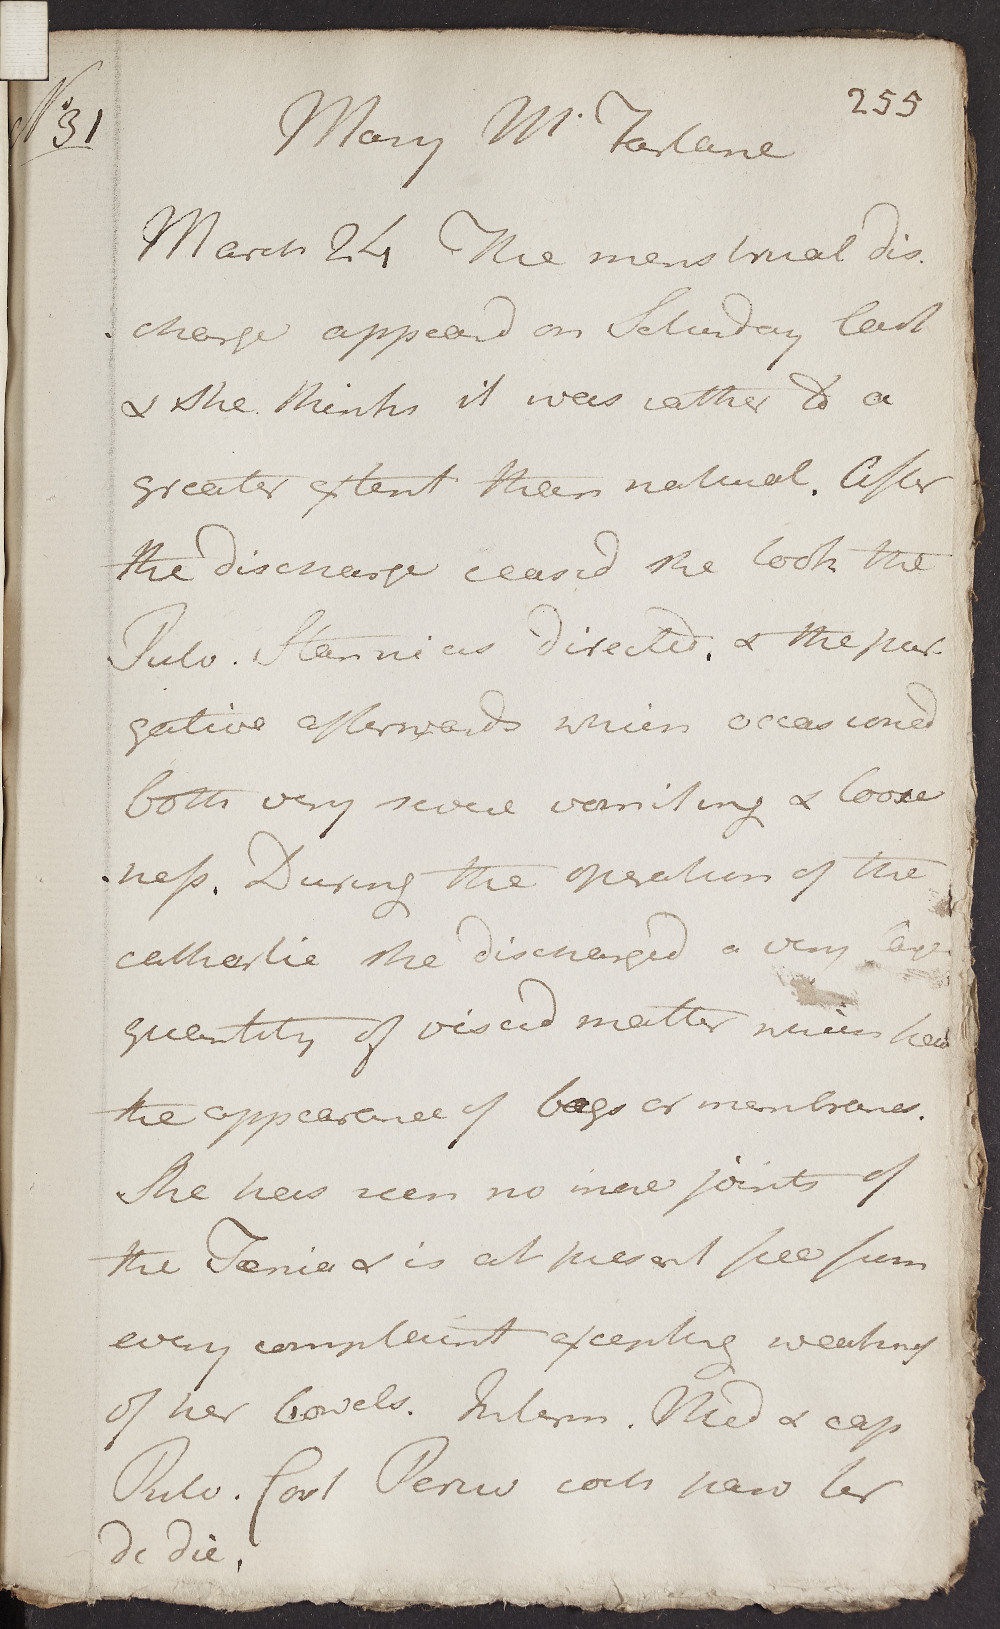 No. 31
255
Mary Mc. Farlane
March 24 The menstrual dis.
charge appeard on Saturday last
& she thinks it was rather to a
greater extent than natural. After
the discharge ceased she took the
Pulv. Stanni as directed, & the pur-
gative afterwards which occasioned
both very severe vomiting & loose
ness. During the operation of the
cathartic she discharged a very large
quantity of viscid matter which had
the appearance of bags or membranes.
She has seen no more joints of
the Tenia & is at present free from
every complaint excepting weakness
of her bowels. Interm. Med & cap
Pulv. Cort Peruv coch parv ter
de die.